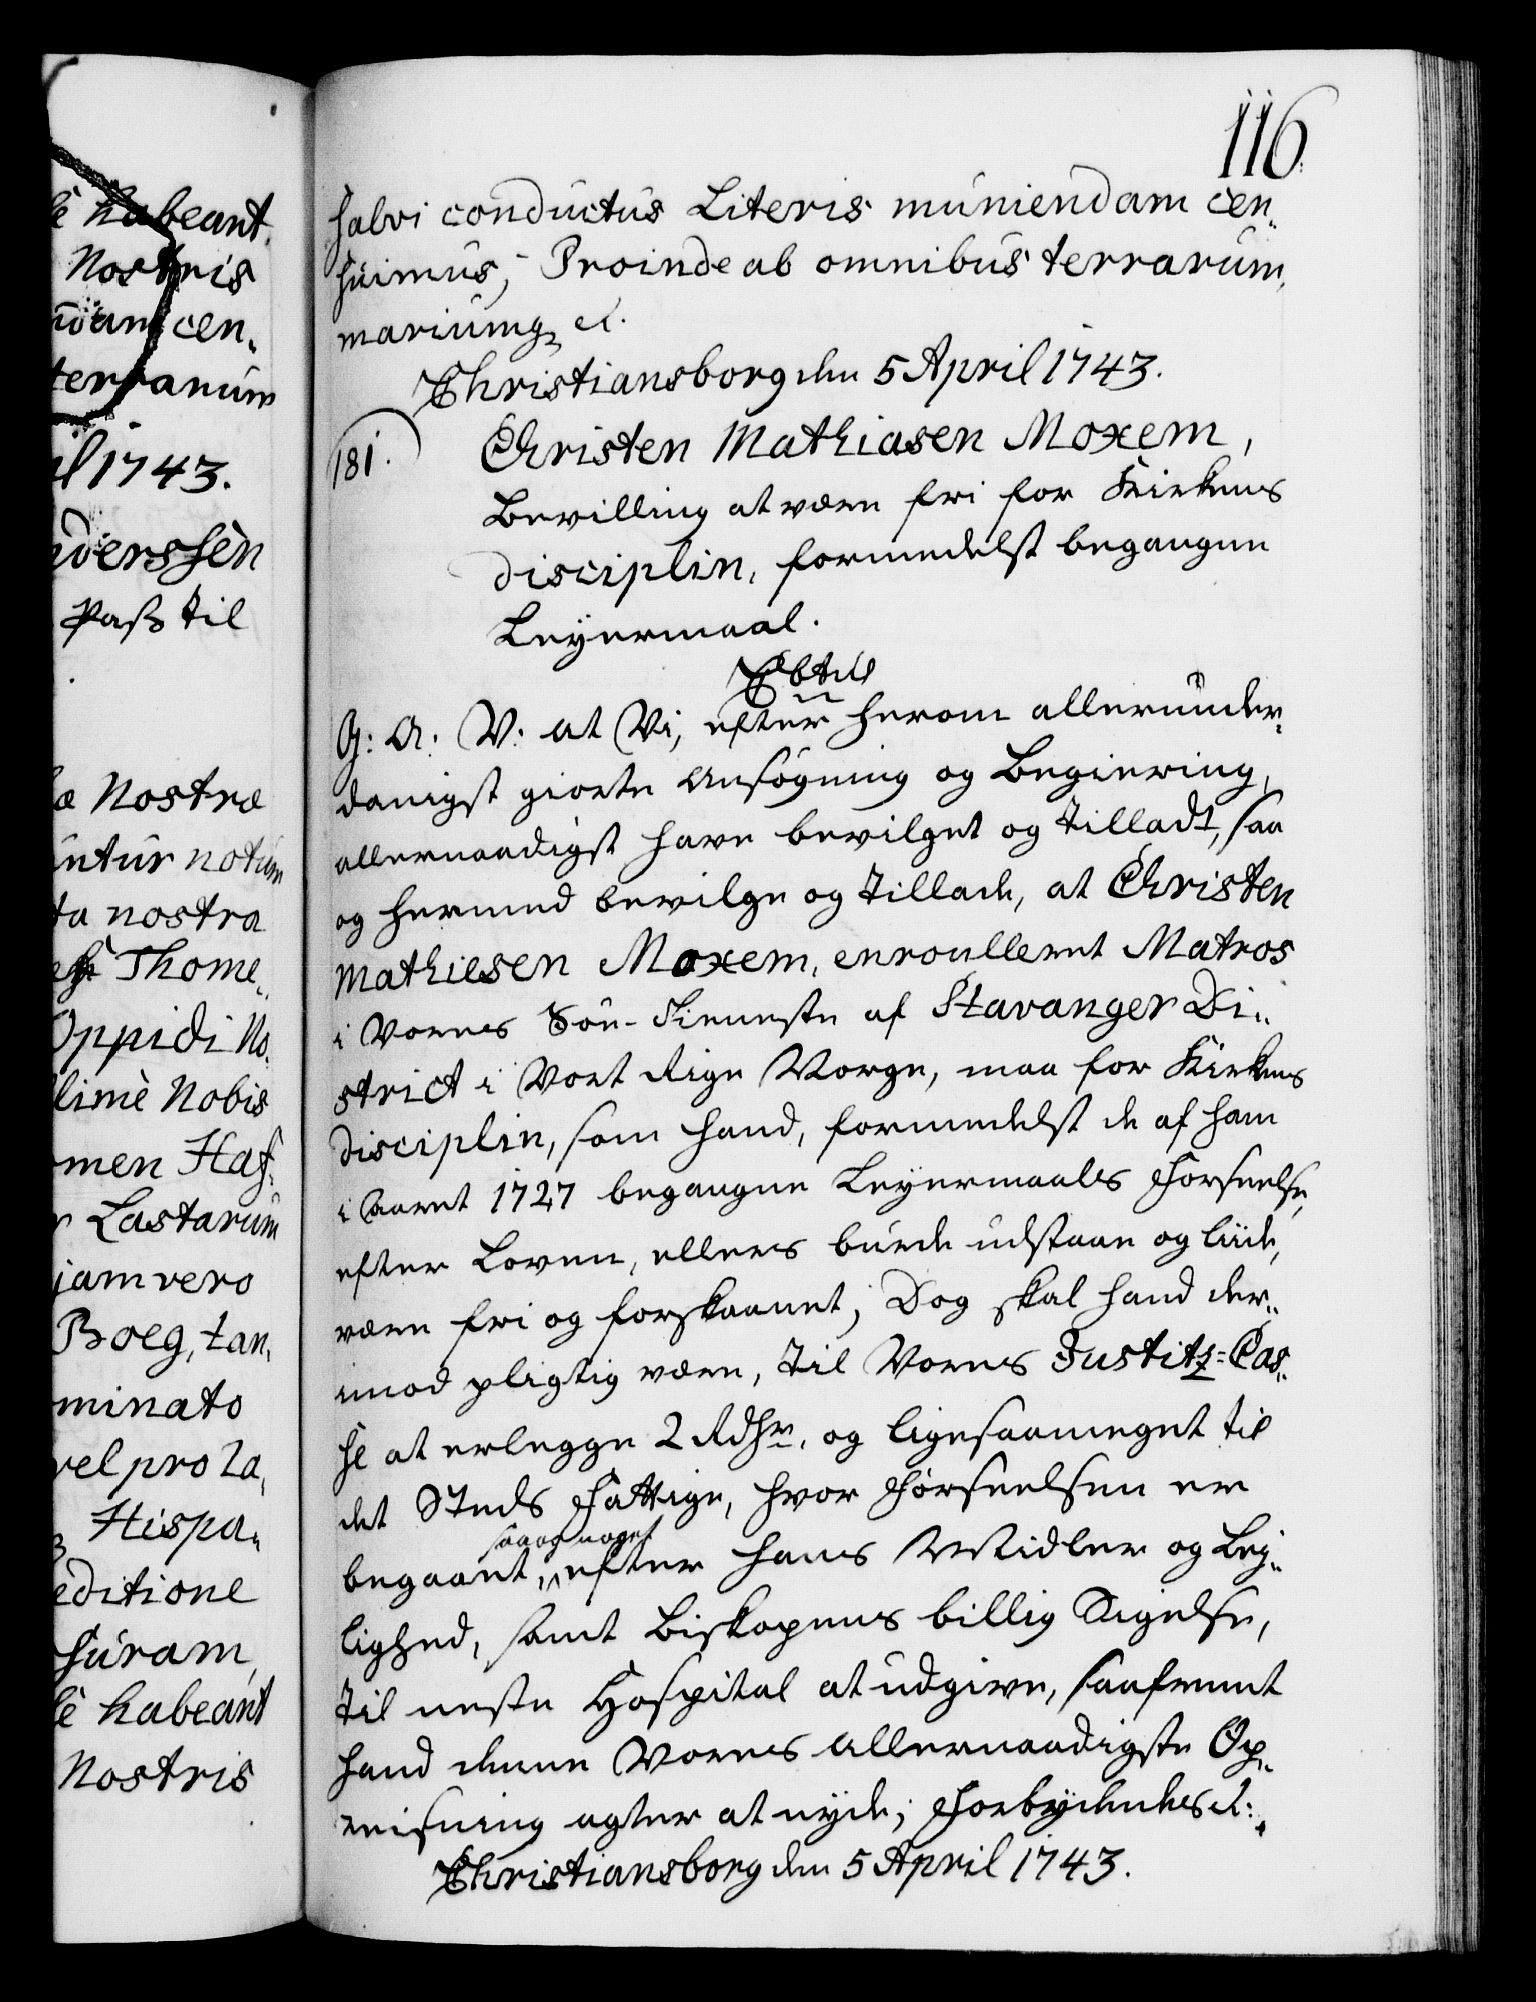 è habeant
Nostris
ndam cen„
terranum
il 1743.
nderssen
Pass til
æ Nostræ
untur notum
ta nostra
Thome„
Oppidi No„
limè Nobis
men Haf„
r Lastarum
jam vero
Boeg, tan„
minato
vel pro La„
Hispa„
editione
suram,
lè habeant
Nostris
116.
salvi conductus Literis muniendam cen„
suimus, Proinde ab omnibus terrarum,
mariumq, etc.
Christiansborg den 5 April 1743.
181.
Christen Mathiasen Moxem,
Bevilling at være fri for Kirkens
disciplin, formedelst begangne
Leyermaal.
G: A: V: at Vi, efter herom allerunder„
danigst giorte Ansøgning og Begiering,
allernaadigst have bevilget og tilladt, saa
og hermed bevilge og tillade, at Christen
Mathiesen Moxem, enroulleret Matros
i Vores Søe-Tieneste af Stavanger Di„
strict i Vort Rige Norge, maa for Kirkens
disciplin, som hand, formedelst de af ham
i Aaret 1727 begangne Leyermaals Forseelse,
efter Loven, ellers burde udstaae og liide,
være fri og forskaanet, Dog skal hand der„
imod pligtig være, til Vores Justitz=Cas„
se at erlegge 2 Rdhr, og ligesaameget til
det Steds Fattige, hvor Forseelsen er
begaaet, saa og noget efter hans Midler og Lej„
lighed, samt Biskopens billig Sigelse,
til neste Hospital at udgive, saafremt
hand denne Vores allernaadigste Op„
reisning agter at nyde; Forbydendes etc:
Christiansborg den 5 April 1743.